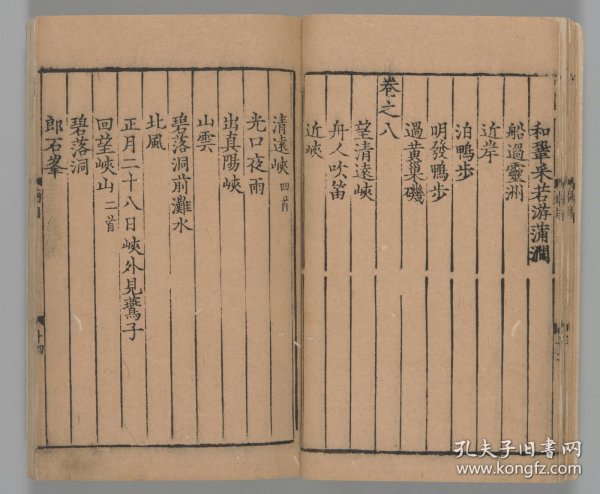 和鞏采若游蒲澗
船過靈洲
近岸
泊鴨步
明發鴨步
過黃巢磯
卷之八
望清遠峽
舟人吹笛
近峽
清遠峽四首
光口夜雨
出真陽峽
山雲
碧落洞前灘水
北風
正月二十八日峽外見鷰子
回望峽山二首
碧落洞
郎石峯
十四
孔夫子旧书网
www.kongfz.com